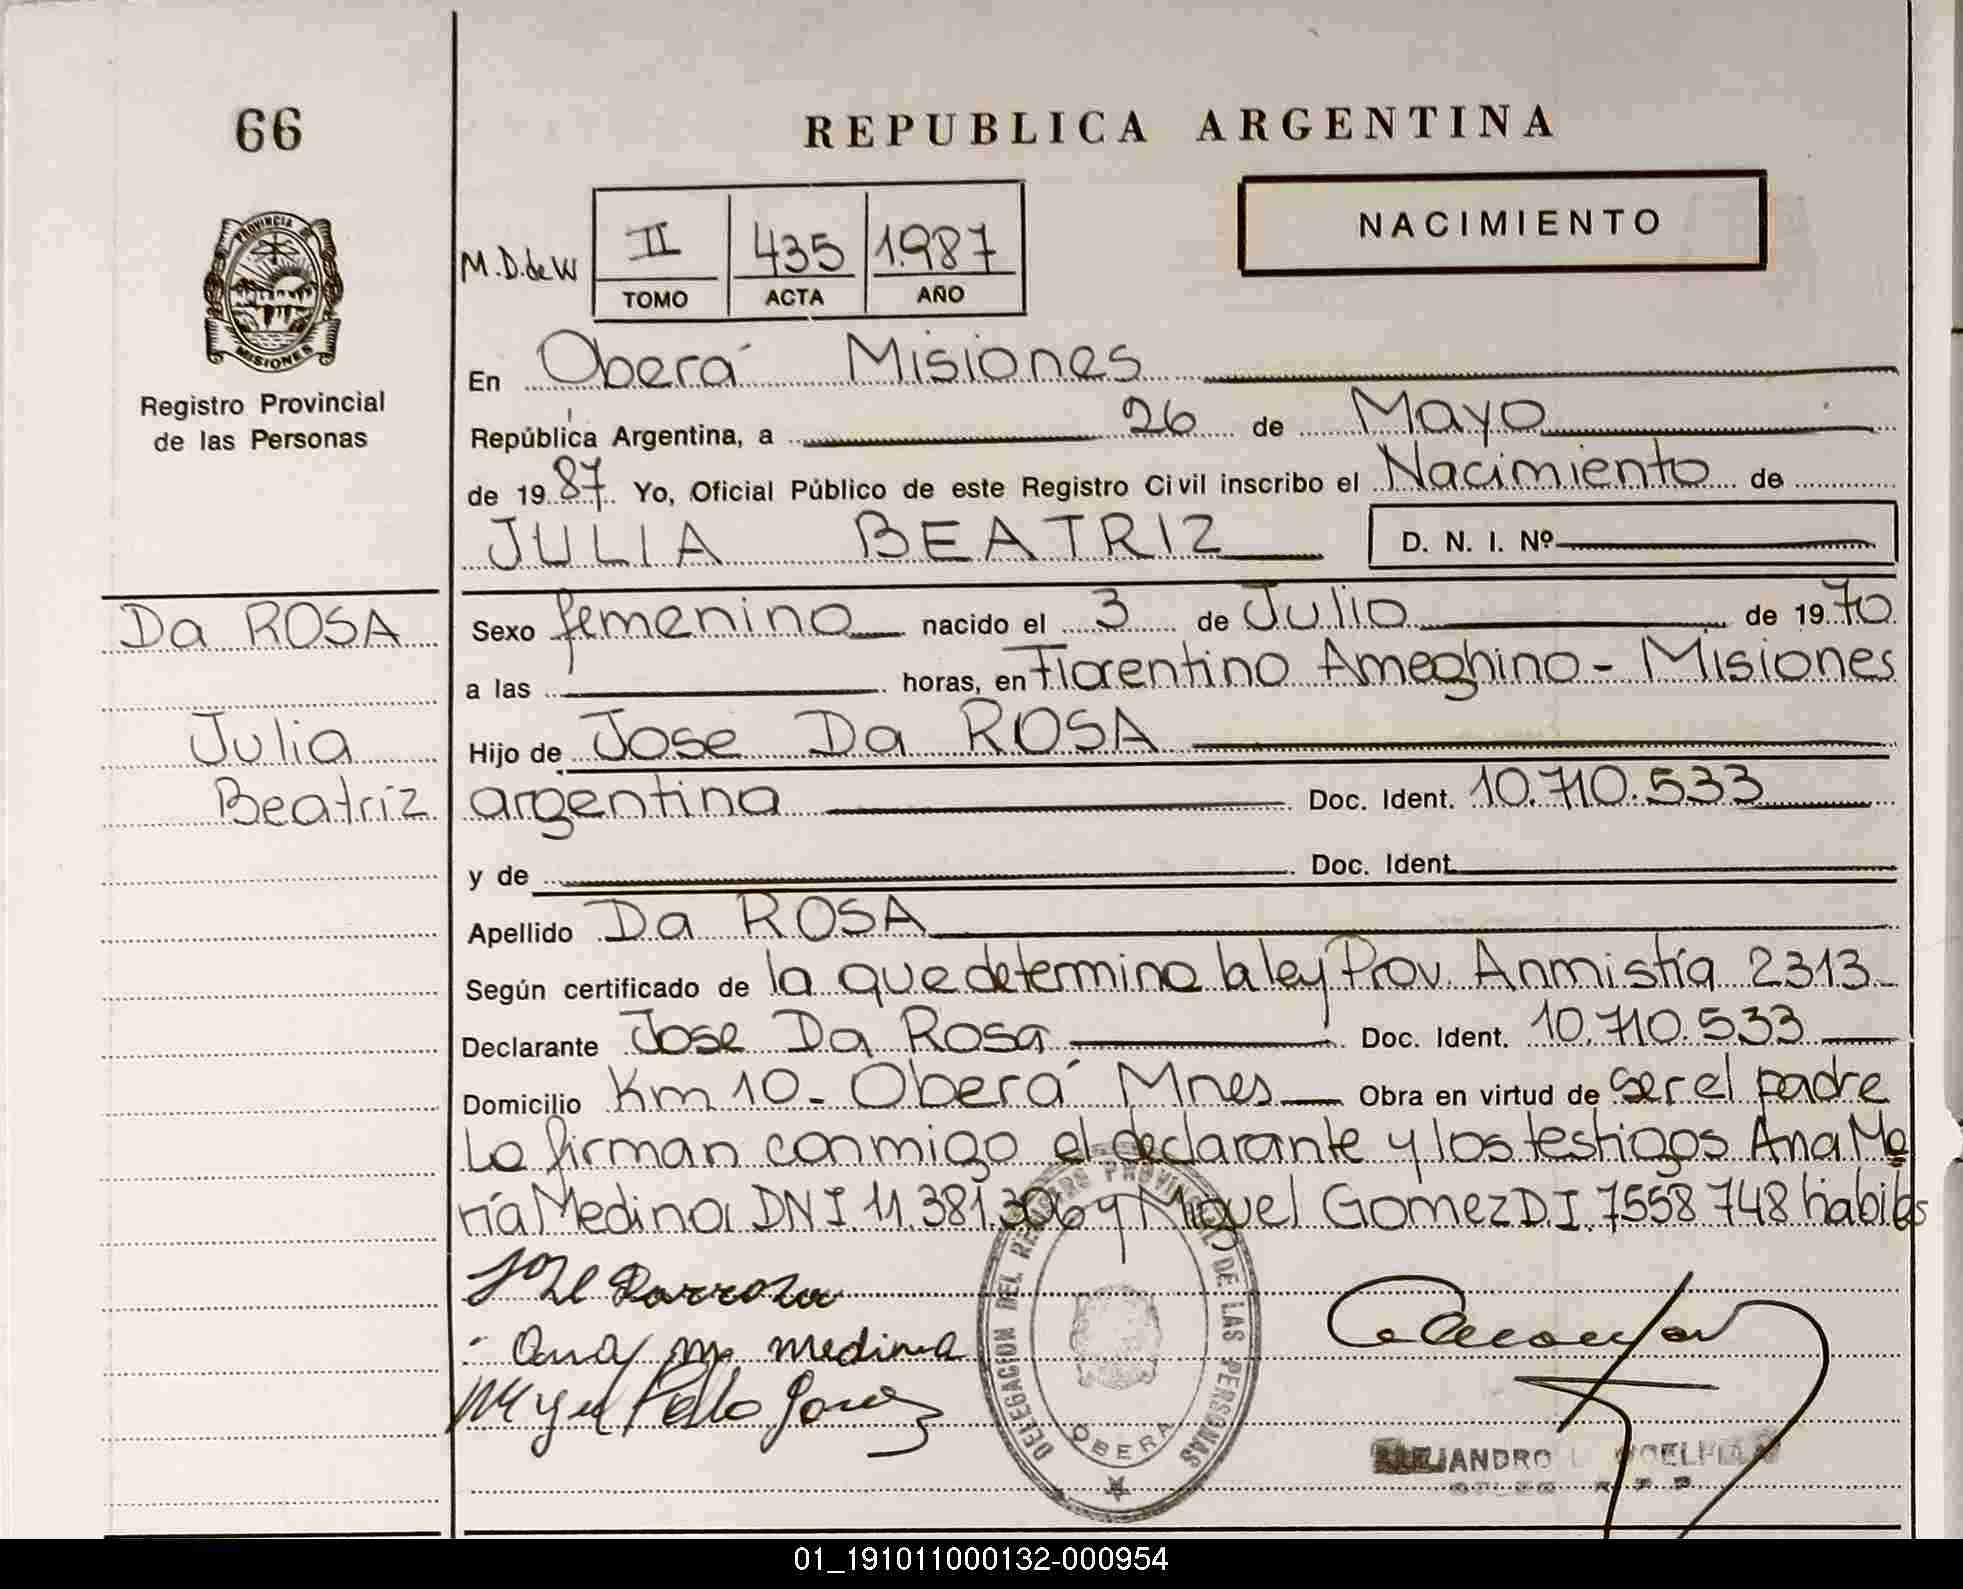 66
REPUBLICA ARGENTINA
PROVINCIA DE
MISIONES
Registro Provincial
de las Personas
NACIMIENTO
M.D.de W
II 435 1.987
TOMO ACTA AÑO
En Oberá Misiones
República Argentina, a 26 de Mayo
de 1987. Yo, Oficial Público de este Registro Civil inscribo el Nacimiento de
JULIA BEATRIZ D. N. I. Nº
Da ROSA
Julia
Beatriz
Sexo femenino nacido el 3 de Julio de 1970
a las horas, en Florentino Ameghino - Misiones
Hijo de Jose Da ROSA
argentina Doc. Ident. 10.710.533
y de Doc. Ident.
Apellido Da ROSA
Según certificado de la que determina la ley Prov. Anmistía 2313
Declarante Jose Da Rosa Doc. Ident. 10.710.533
Domicilio Km 10 - Oberá Mnes Obra en virtud de ser el padre
Lo firman conmigo el declarante y los testigos Ana Ma
ría Medina DNI 11.381.306 y Miguel Gomez D.I. 7558748 habiles
Ana M. medina
DELEGACION DEL REGISTRO PROVINCIAL DE LAS PERSONAS
OBERA
ALEJANDRO COELHO
01_191011000132-000954